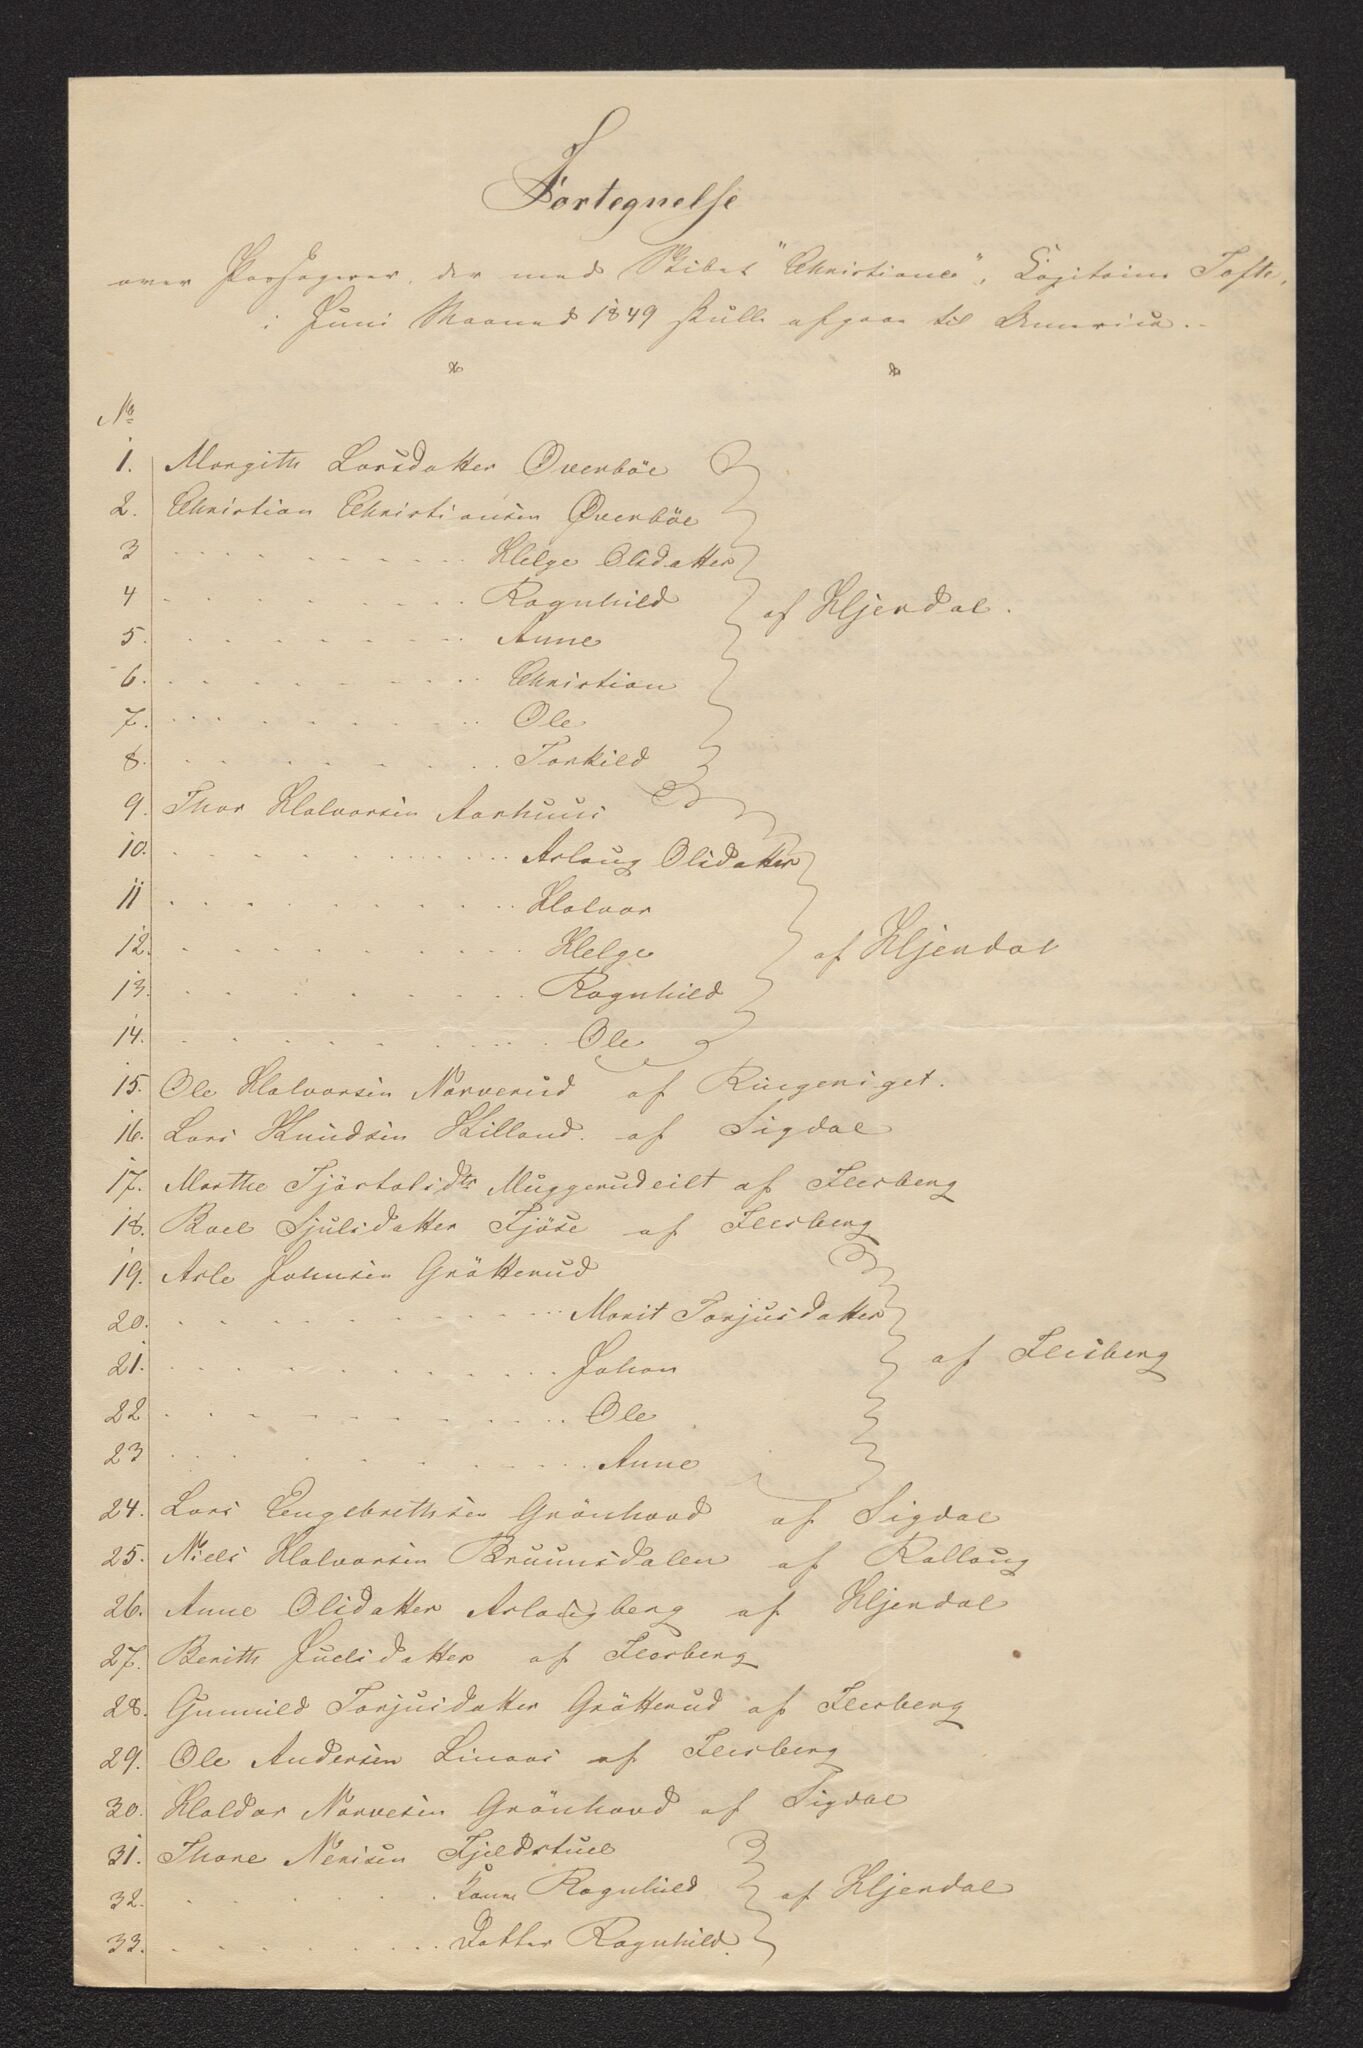 Fortegnelse
over Passagerer, der med Skibet "Christiane", Capitaine Tofte,
i Juni Maaned 1849 skulle afgaae til America.
No
1. Margith Larsdatter Overböe
2. Christian Christiansen Øverböe
3 Helge Olsdatter
4 Ragnhild
af Hjerdal.
5. Anne
6. Christian
7. Ole
8. Torkild
9. Thor Halvorsen Aarhuus
10. Aslaug Olsdatter
11 Halvor
12. Helge
af Hjerdal
13. Ragnhild
14. Ole
15. Ole Halvorsen Narverud af Ringeriget.
16. Lars Knudsen Killand af Sigdal
17. Marthe Tjöstolsdtr Muggerudeilt af Flesberg
18. Boel Sjulsdatter Fjöse af Flesberg
19. Asle Johnsen Grötterud
20. Marit Torjusdatter
21. Johan
af Flesberg
22 Ole
23 Anne
24. Lars Engebrethsen Grönhovd af Sigdal
25. Niels Halvorsen Bruunsdalen af Rollaug
26. Anne Olsdatter Aslaugberg af Hjerdal
27. Berith Juelsdatter af Flesberg
28. Gunnild Torjusdatter Grötterud af Flesberg
29. Ole Andersen Linaas af Flesberg
30. Haldor Narvesen Grönhovd af Sigdal
31. Thore Nerisen Fjeldstuel
32. Kone Ragnhild af Hjerdal
33. Datter Ragnhild.